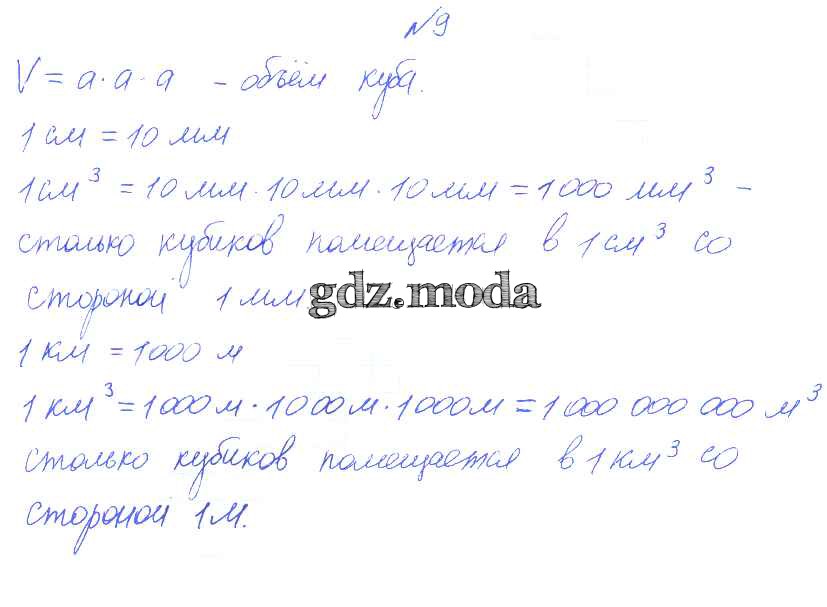 №9
V = a·a·a – объём куба.
1 см = 10 мм
1 см³ = 10 мм · 10 мм · 10 мм = 1000 мм³ –
столько кубиков помещается в 1 см³ со
стороной 1 мм
gdz.moda
1 км = 1000 м
1 км³ = 1000 м · 1000 м · 1000 м = 1 000 000 000 м³
столько кубиков помещается в 1 км³ со
стороной 1 м.